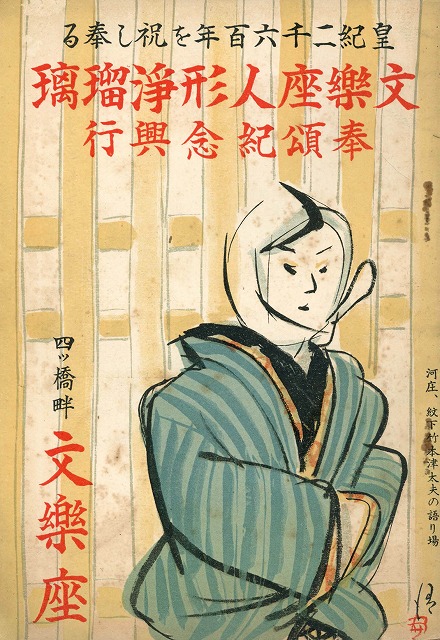 皇紀二千六百年を祝し奉る
文樂座人形淨瑠璃
奉頌紀念興行
河庄、紋下竹本津太夫の語り場
四ツ橋畔
文樂座